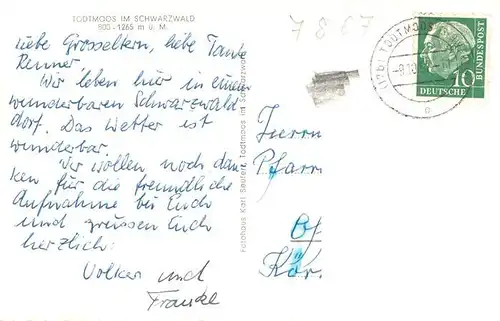 TODTMOOS IM SCHWARZWALD
800-1265 m ü. M.
7867
Liebe Grosseltern, liebe Tante
Renner,
Wir leben hier in einem
wunderbaren Schwarzwald
dorf. Das Wetter ist
wunderbar.
Wir wollen noch dan-
ken für die freundliche
Aufnahme bei Euch
und grüssen Euch
herzlich:
Volker und
Frauke
Fotohaus Karl Seufert, Todtmoos im Schwarzwald
(17b) TODTMOOS
-8.10.
DEUTSCHE
BUNDESPOST
10
Herrn
Pfarr.
Kör.